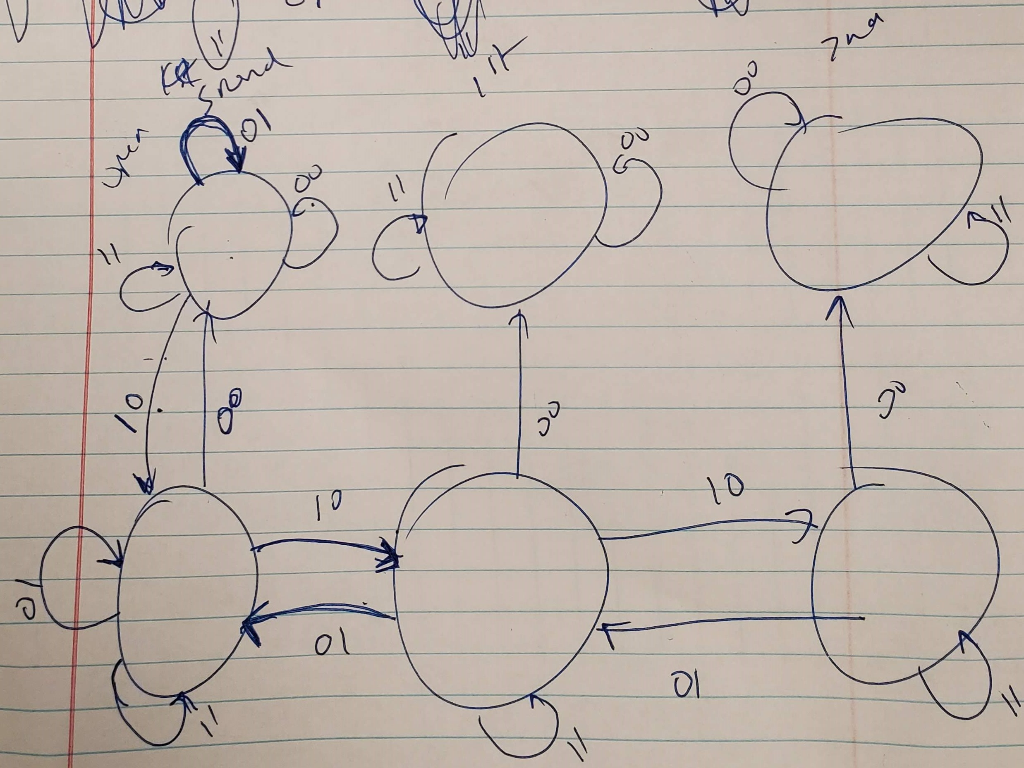 11
1st
2nd
01
00
00
00
11
11
11
10
00
00
00
10
10
01
01
01
11
11
11